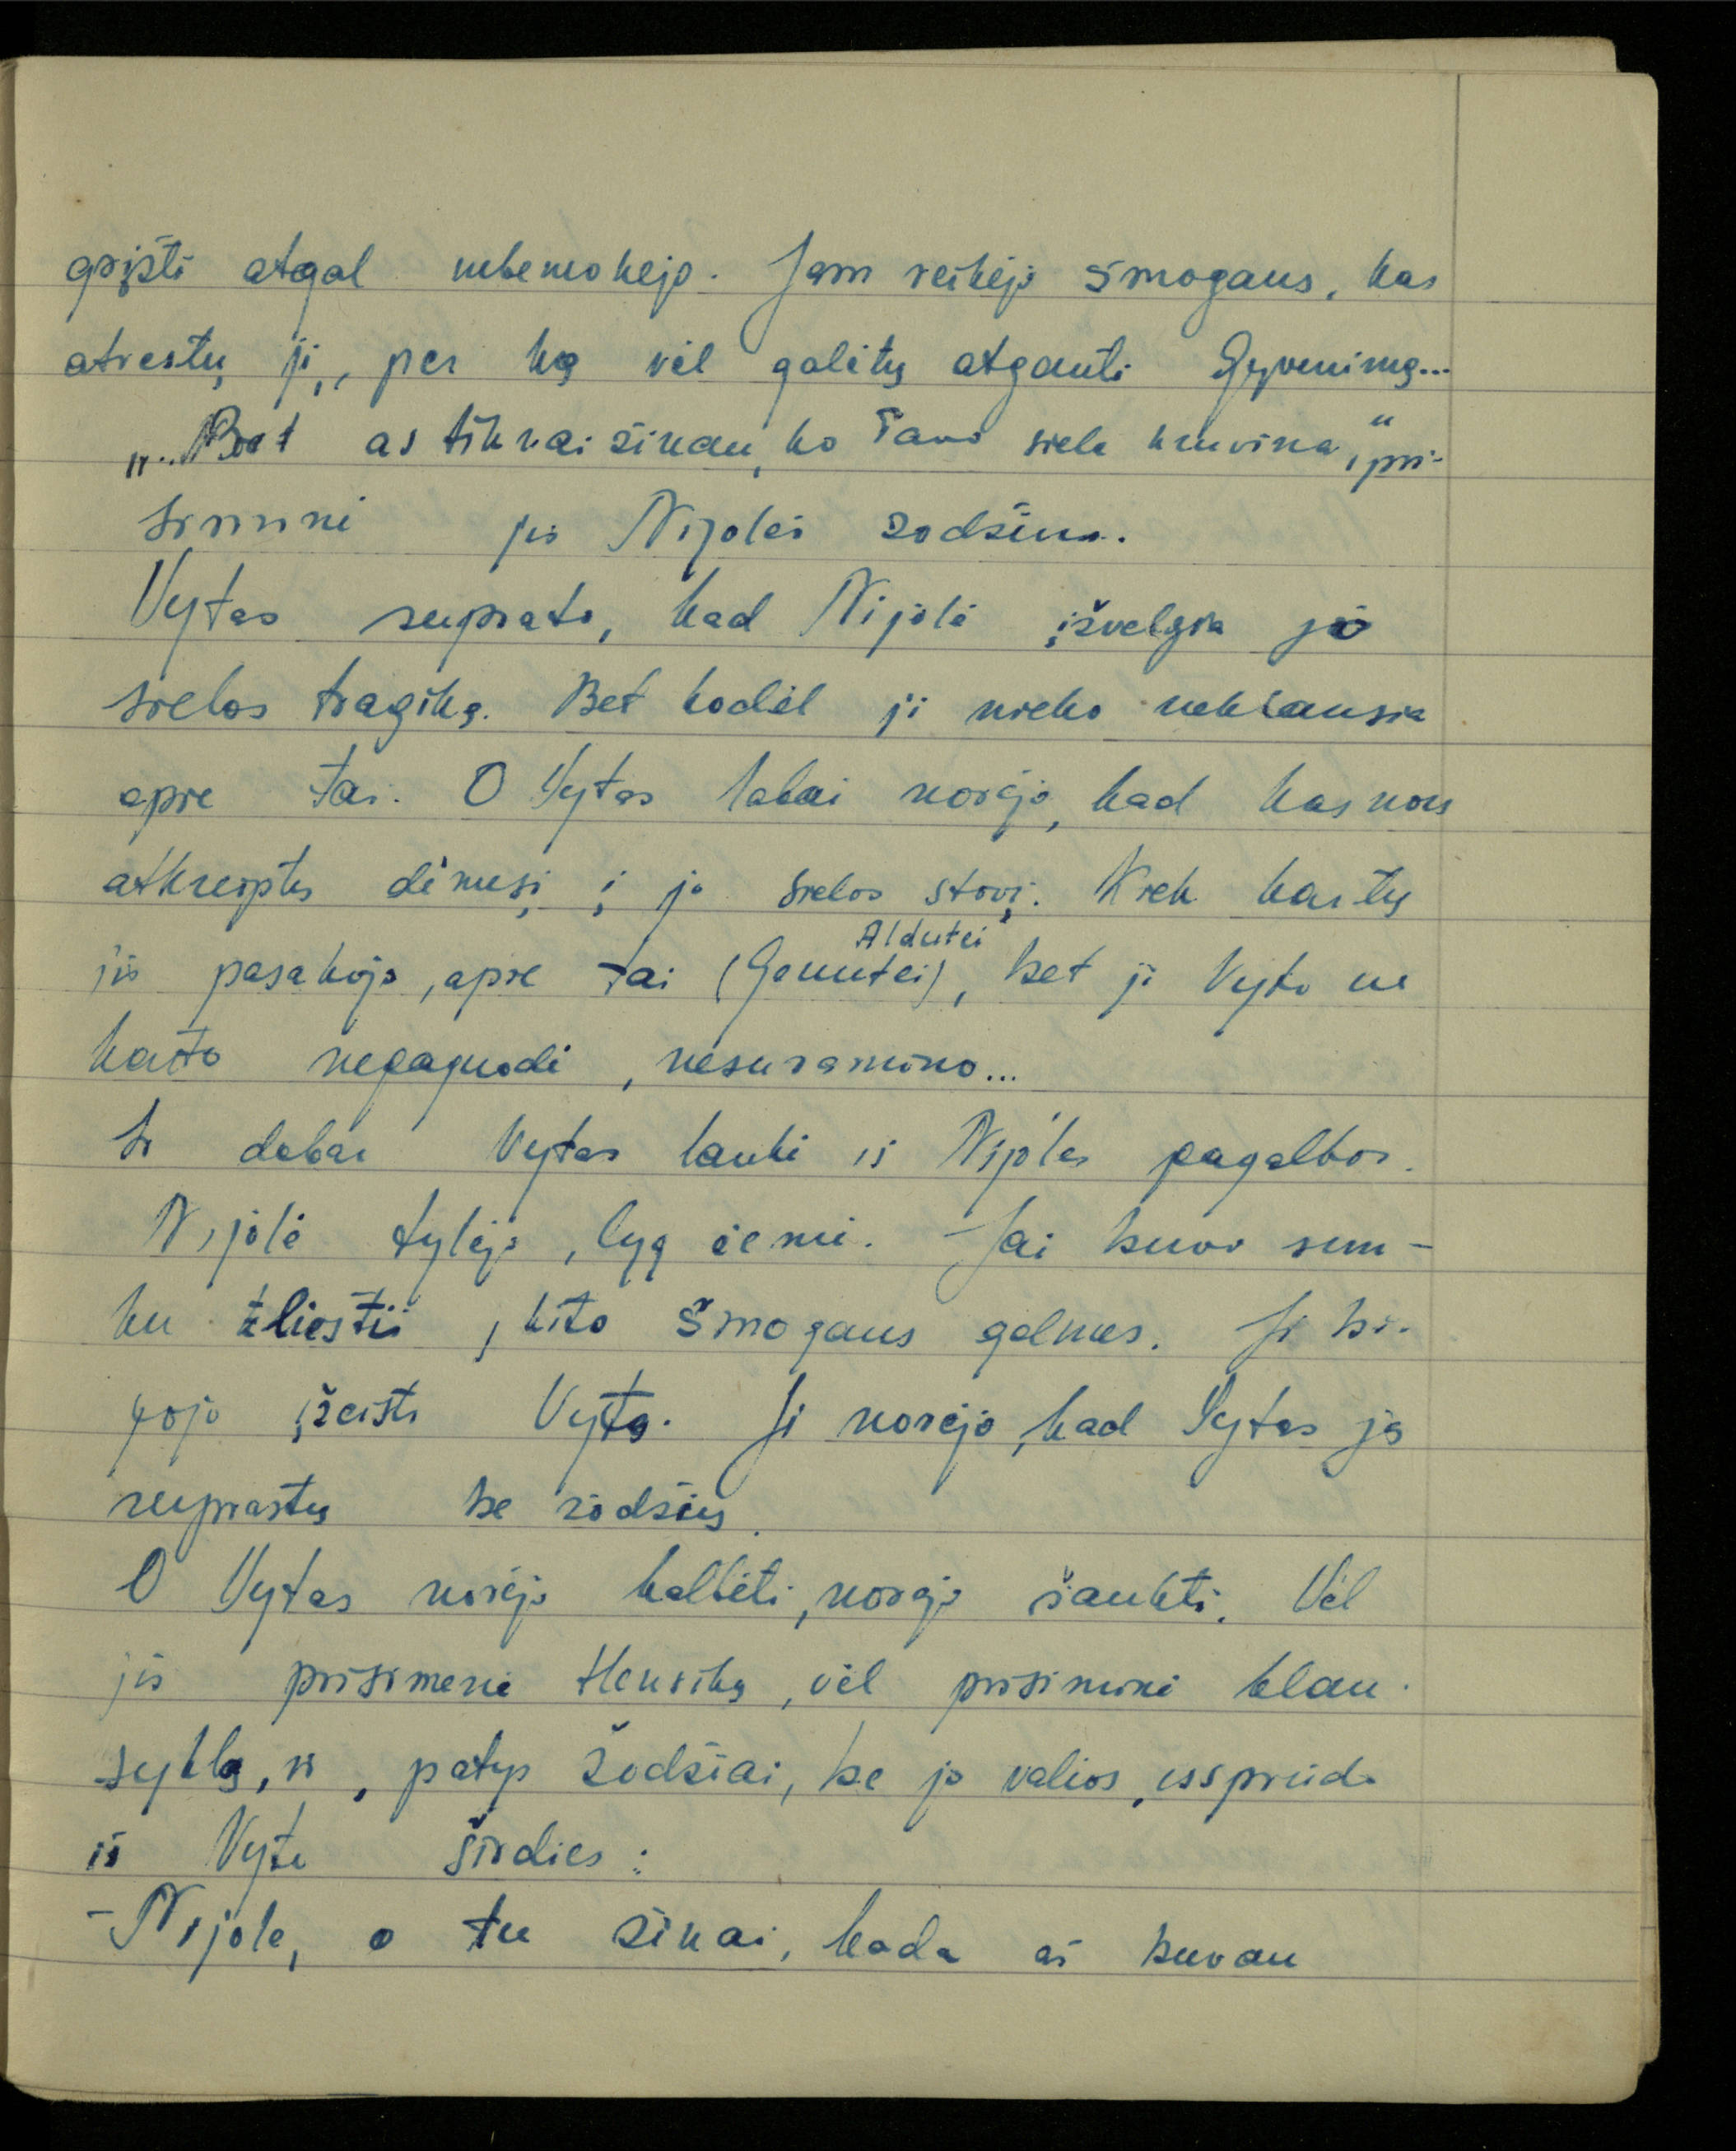 grįžti atgal nebemokėjo. Jam reikėjo žmogaus, kas
atrestų jį, per ką vėl galėtų atgauti Gyvenimą...
„..Bet aš tikrai žinau, ko Tavo siela kruvina,“ pri-
siminė jis Nijolės žodžius.
Vytas suprato, kad Nijolė įžvelgia jo
sielos tragiką. Bet kodėl ji nieko neklausia
apie tai. O Vytas labai norėjo, kad kas nors
atkreiptų dėmesį į jo sielos stovį. Kiek kartų
Aldutei
jis pasakojo, apie tai (Genutei), bet ji Vyto ne
karto nepaguodė, nesuramino...
Ir dabar Vytas laukė iš Nijolės pagalbos.
Nijolė tylėjo, lyg žemė. Jai buvo sun-
ku žliesti į kito žmogaus gelmes. Ji bi-
jojo įžeisti Vytą. Ji norėjo, kad Vytas ją
suprastų be žodžių.
O Vytas norėjo kalbėti, norėjo šaukti. Vėl
jis prisimenė Henriką, vėl prisiminė klau-
syklą, ir, patys žodžiai, be jo valios, išsprūdo
iš Vyto širdies:
- Nijole, o tu žinai, kada aš buvau